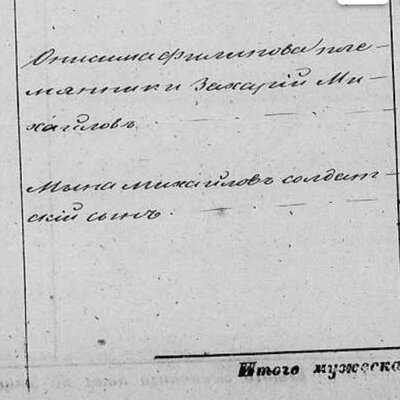 Онисима Филипова пле-
мянники Захарій Ми-
хайловъ
Мина Михайловъ солдат-
скій сынъ
Итого мужеска